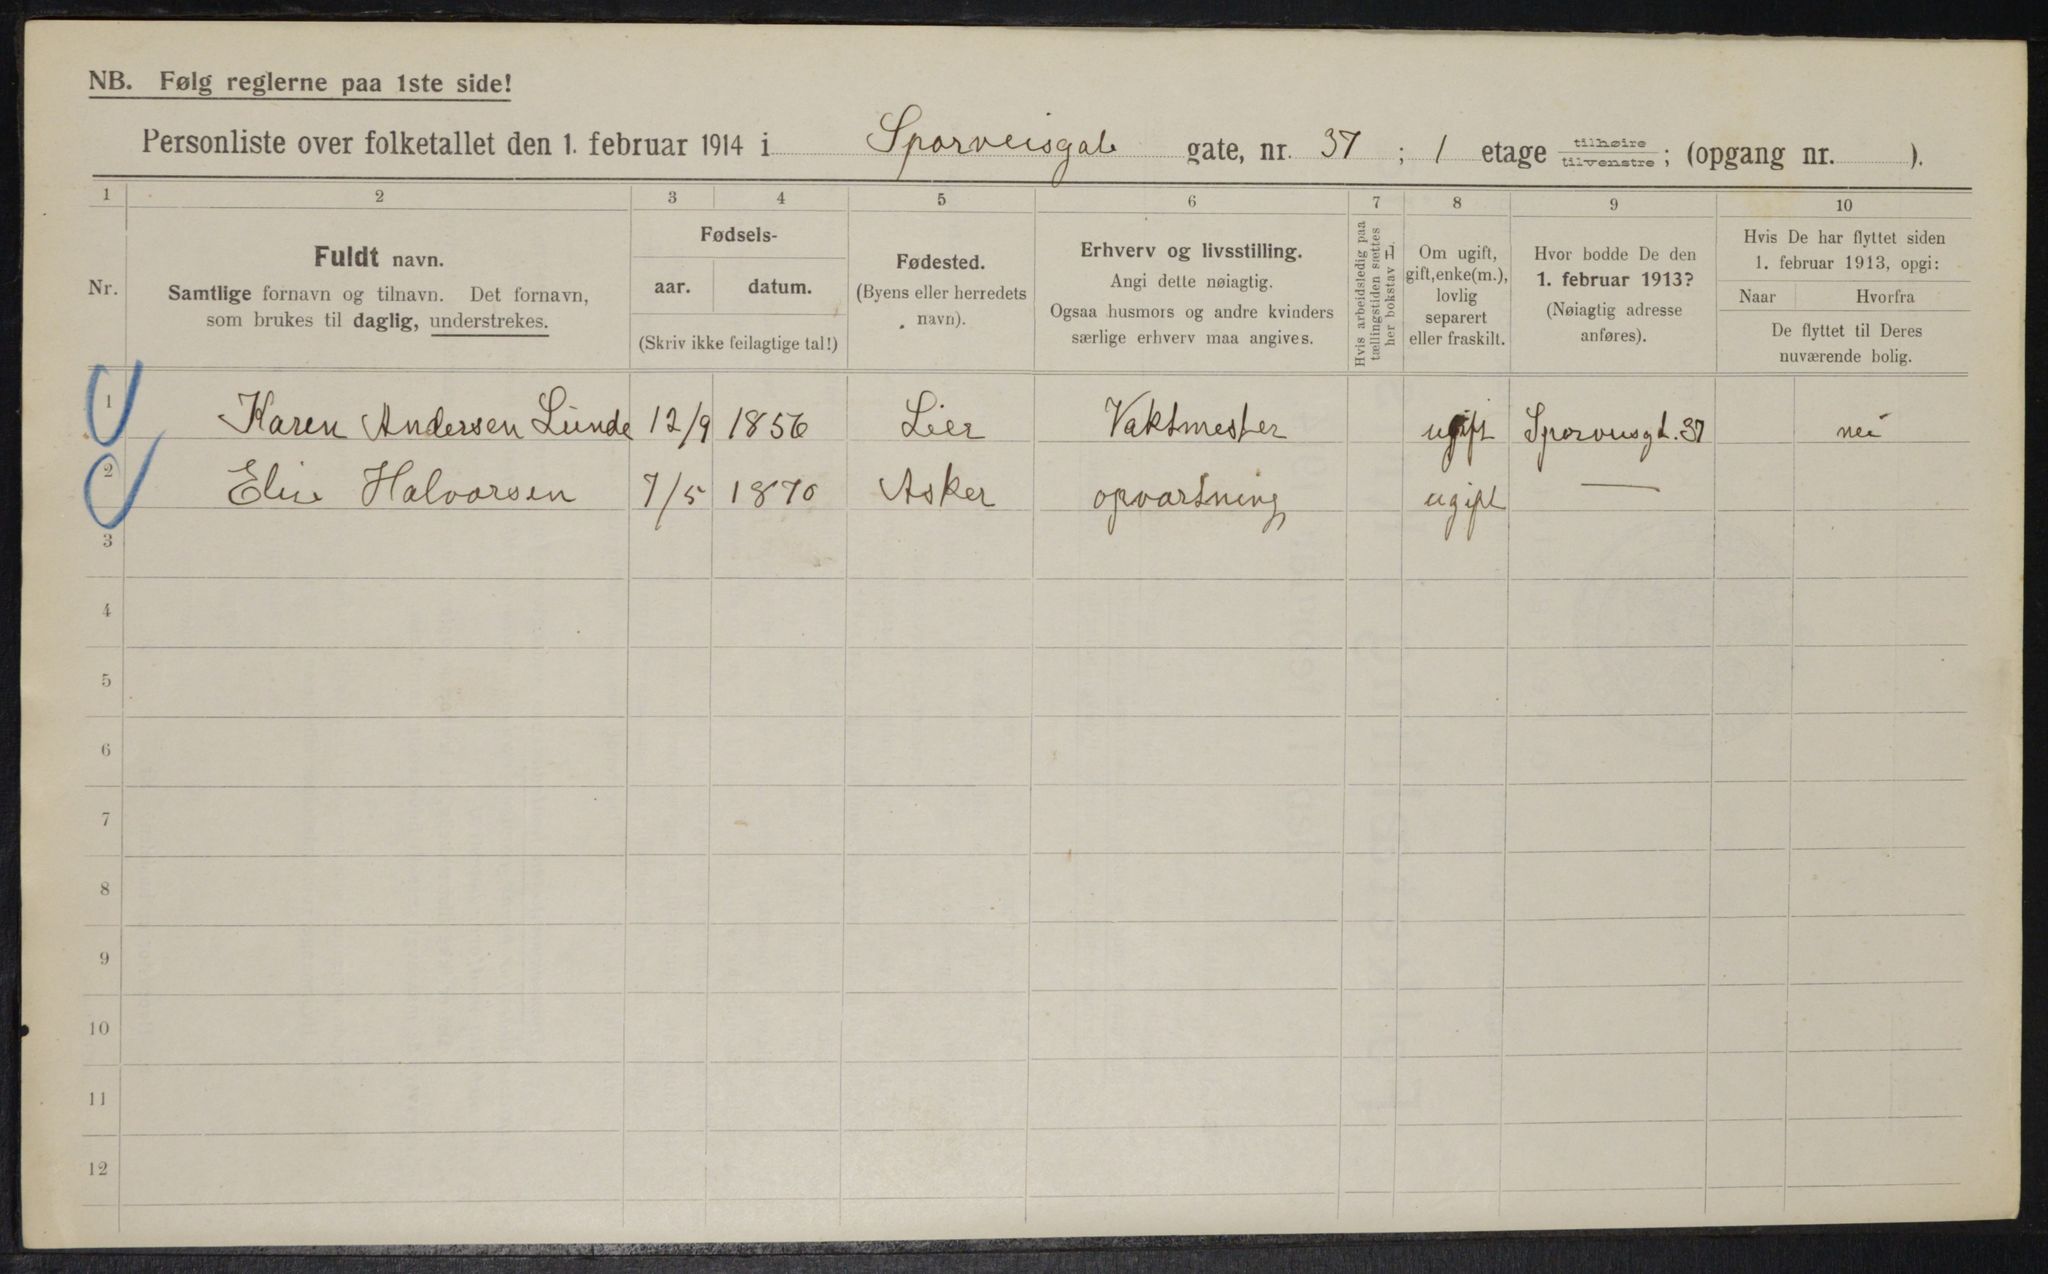 NB. Følg reglerne paa 1ste side!
Personliste over folketallet den 1. februar 1914 i Sporveisgate gate, nr. 37 ; 1 etage tilhøire/tilvenstre; (opgang nr. ).
1 2 3 4 5 6 7 8 9 10
Nr.
Fuldt navn.
Samtlige fornavn og tilnavn. Det fornavn,
som brukes til daglig, understrekes.
Fødsels-
aar. datum.
(Skriv ikke feilagtige tal!)
Fødested.
(Byens eller herredets
navn).
Erhverv og livsstilling.
Angi dette nøiagtig.
Ogsaa husmors og andre kvinders
særlige erhverv maa angives.
Hvis arbeidsledig paa
tællingstiden sættes
her bokstav L
Om ugift,
gift, enke(m.),
lovlig
separert
eller fraskilt.
Hvor bodde De den
1. februar 1913?
(Nøiagtig adresse
anføres).
Hvis De har flyttet siden
1. februar 1913, opgi:
Naar Hvorfra
De flyttet til Deres
nuværende bolig.
1 Karen Andersen Lunde 12/9 1856 Lier Vaktmester ugift Sporveisgt. 37 nei
2 Elise Halvorsen 7/5 1870 Asker opvartning ugift —
3
4
5
6
7
8
9
10
11
12